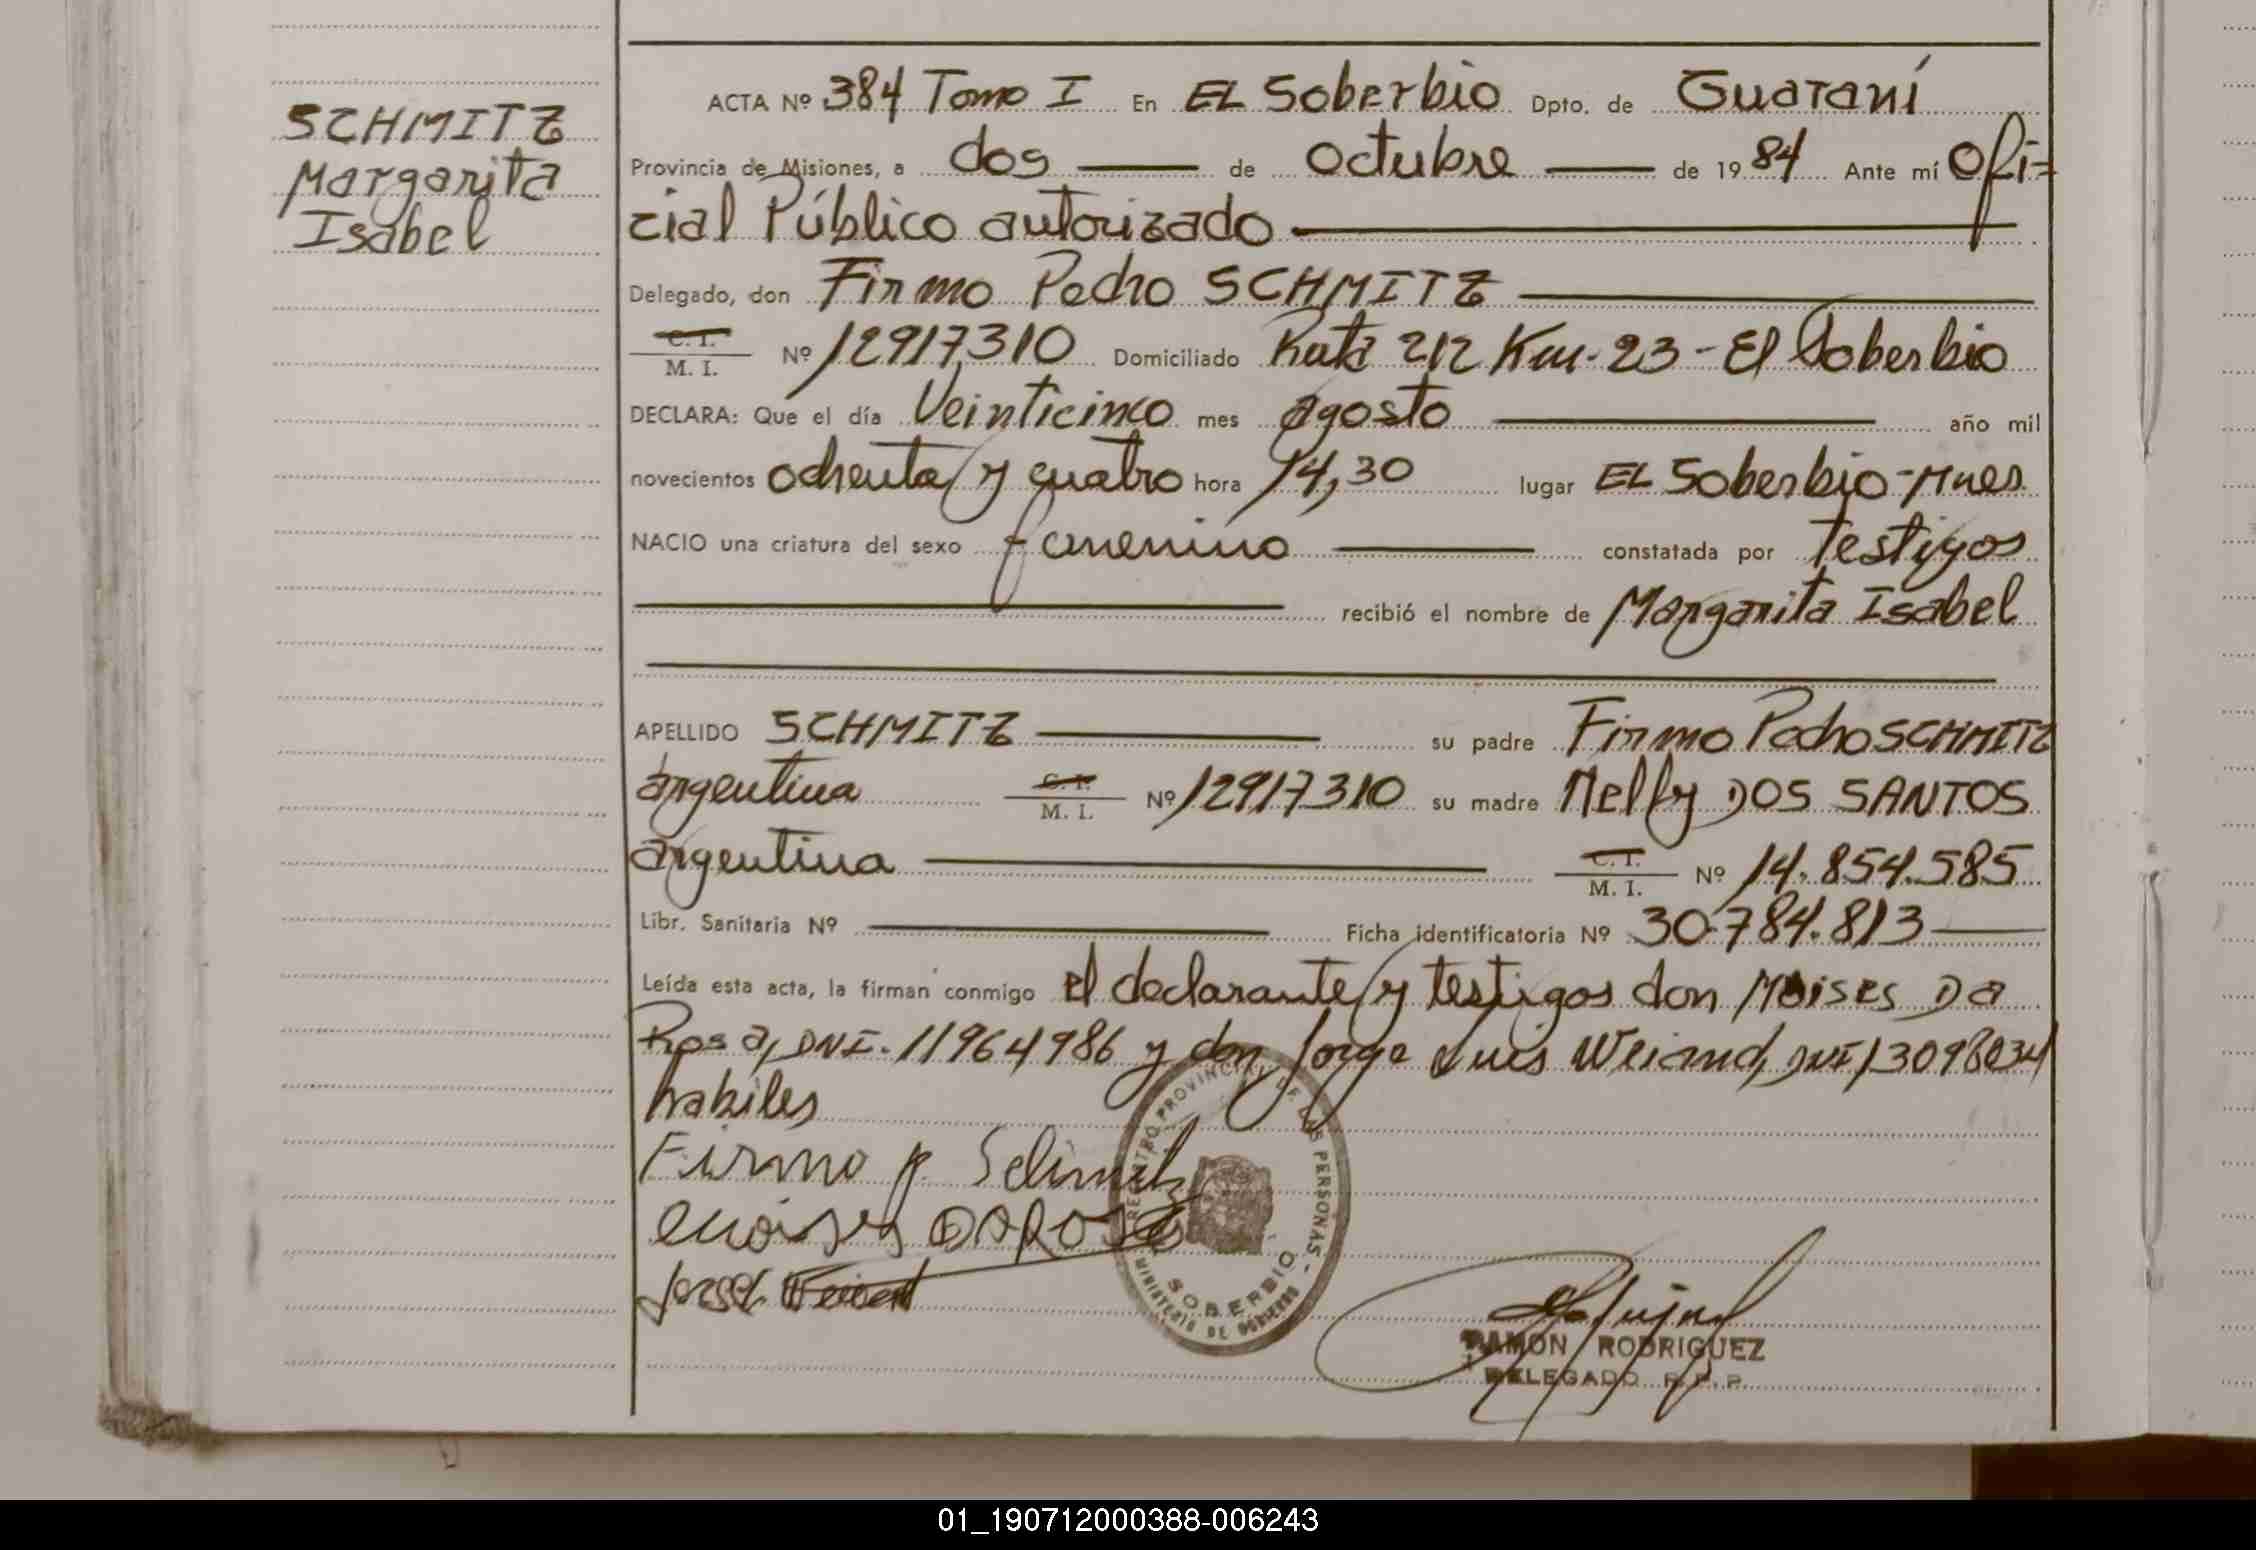 SCHMITZ
Margarita
Isabel
ACTA Nº 384 Tomo I En EL Soberbio Dpto. de Guaraní
Provincia de Misiones, a dos de octubre de 1984 Ante mí Ofi=
cial Público autorizado
Delegado, don Firmo Pedro SCHMITZ
C. I.
M. I. Nº 12917310 Domiciliado Ruta 212 Km. 23 - El Soberbio
DECLARA: Que el día Veinticinco mes agosto año mil
novecientos ochenta y cuatro hora 14,30 lugar EL Soberbio - Mnes
NACIO una criatura del sexo femenino constatada por testigos
recibió el nombre de Margarita Isabel
APELLIDO SCHMITZ su padre Firmo Pedro SCHMITZ
argentina C. I. M. I. Nº 12917310 su madre Nelly DOS SANTOS
argentina C. I. M. I. Nº 14.854.585
Libr. Sanitaria Nº Ficha identificatoria Nº 30.784.813
Leída esta acta, la firman conmigo el declarante y testigos don Moises Da
Rosa, DNI. 11964986 y don Jorge Luis Weiand, DNI 13098034
habiles
Firmo p. Schmitz
moises DAROSA
REGISTRO PROVINCIAL DE LAS PERSONAS -
SOBERBIO
MINISTERIO DE GOBIERNO
RAMON RODRIGUEZ
DELEGADO R.P.P.
01_190712000388-006243